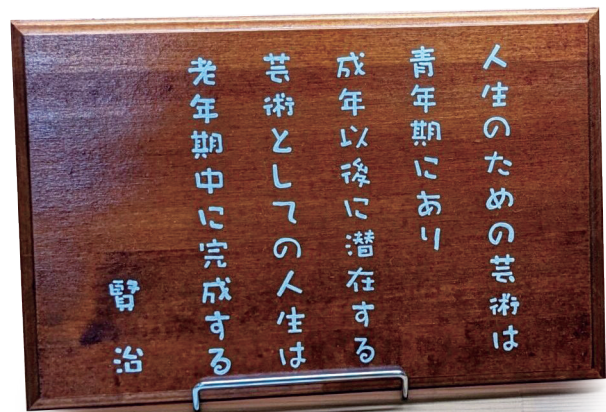 人生のための芸術は
青年期にあり
成年以後に潜在する
芸術としての人生は
老年期中に完成する
賢治